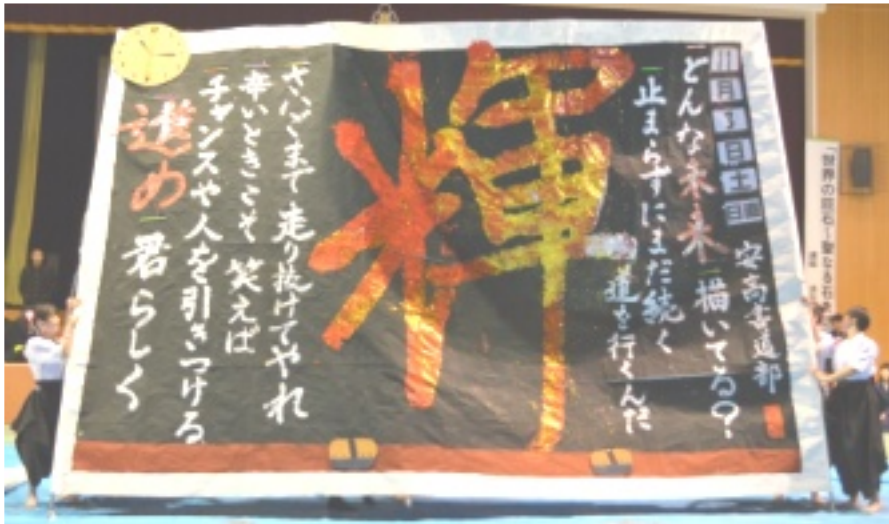 11月3日土曜日
安高書道部
どんな未来描いてる？
止まらずにまだ続く
道を行くんだ
輝
さいごまで走り抜けてやれ
辛いときこそ笑えば
チャンスや人を引きつける
進め君らしく
「世界の巨石―聖なる石